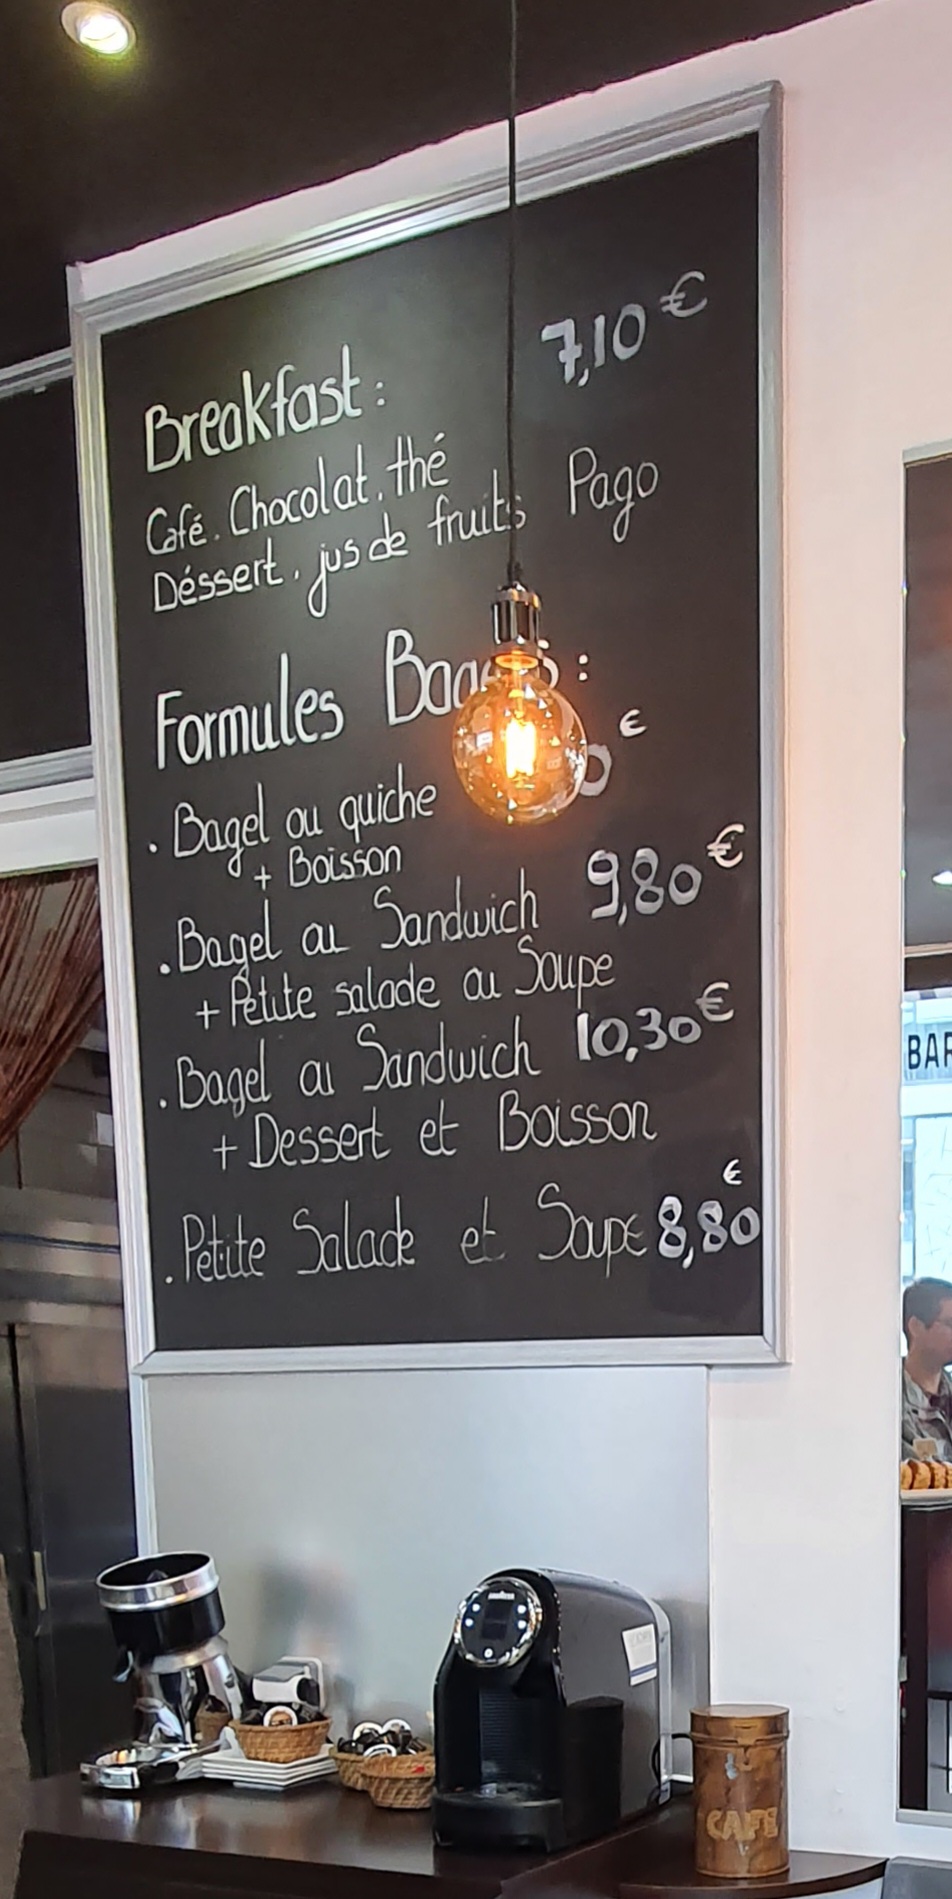 Breakfast: 7,10€
Café. Chocolat. thé
Déssert. jus de fruits Pago
Formules :
. Bagel ou quiche €
+ Boisson
. Bagel ou Sandwich 9,80€
+ Petite salade ou Soupe
. Bagel ou Sandwich 10,30€
+ Dessert et Boisson
. Petite Salade et Soupe 8,80€
BAR
CAFE